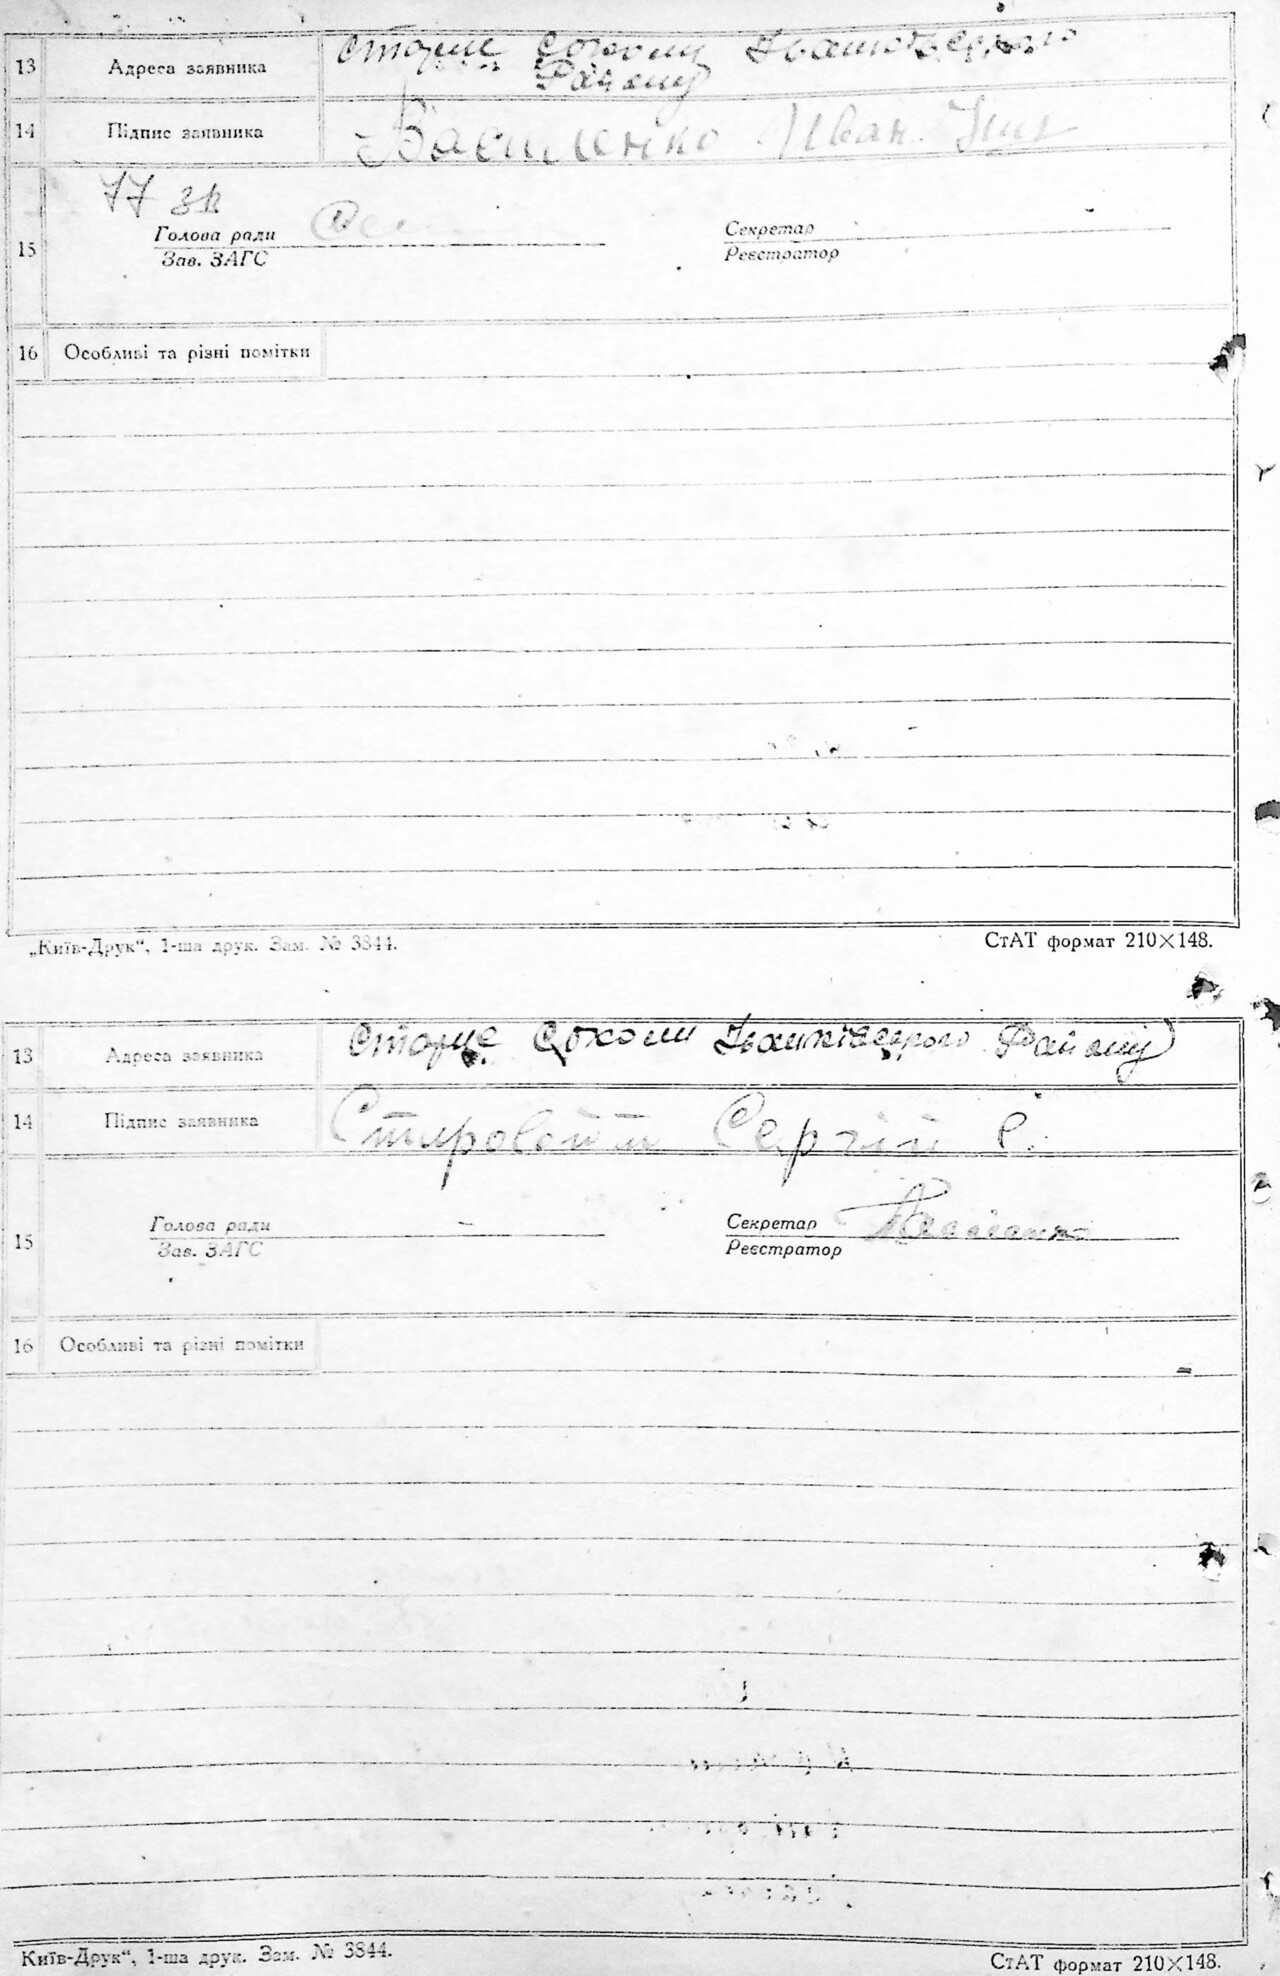 13 Адреса заявника Старие Соколи Іванківського
Району
14 Підпис заявника Василенко Иван
77 зв
15 Голова ради Секретар
Зав. ЗАГС Реєстратор
16 Особливі та різні помітки
„Київ-Друк“, 1-ша друк. Зам. № 3844. СтАТ формат 210×148.
13 Адреса заявника Старие Соколи Іванківського Району
14 Підпис заявника Сергій
15 Голова ради Секретар
Зав. ЗАГС Реєстратор
16 Особливі та різні помітки
Київ-Друк“, 1-ша друк. Зам. № 3844. СтАТ формат 210×148.